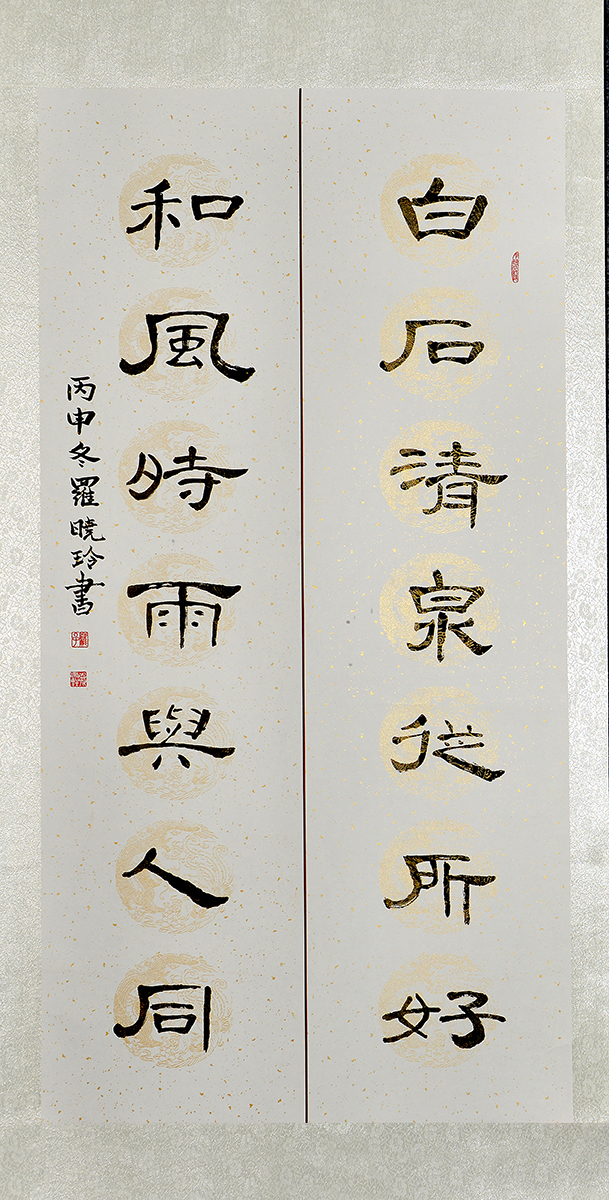 白石清泉從所好
和風時雨與人同
丙申冬羅曉玲書